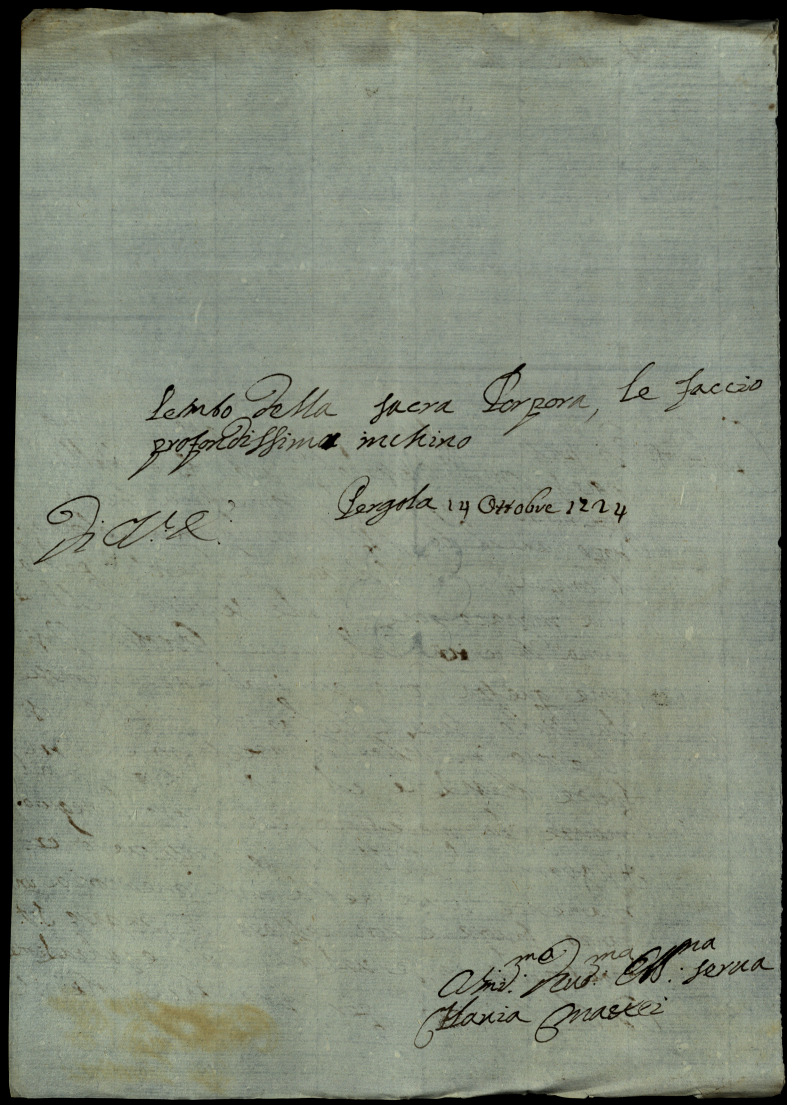 lembo della sacra Porpora, le faccio
profondissimo inchino
Pergola 14 Ottobre 1724
Di V. E.
Um.ma Dev.ma Obb.ma serva
Maria Maffei